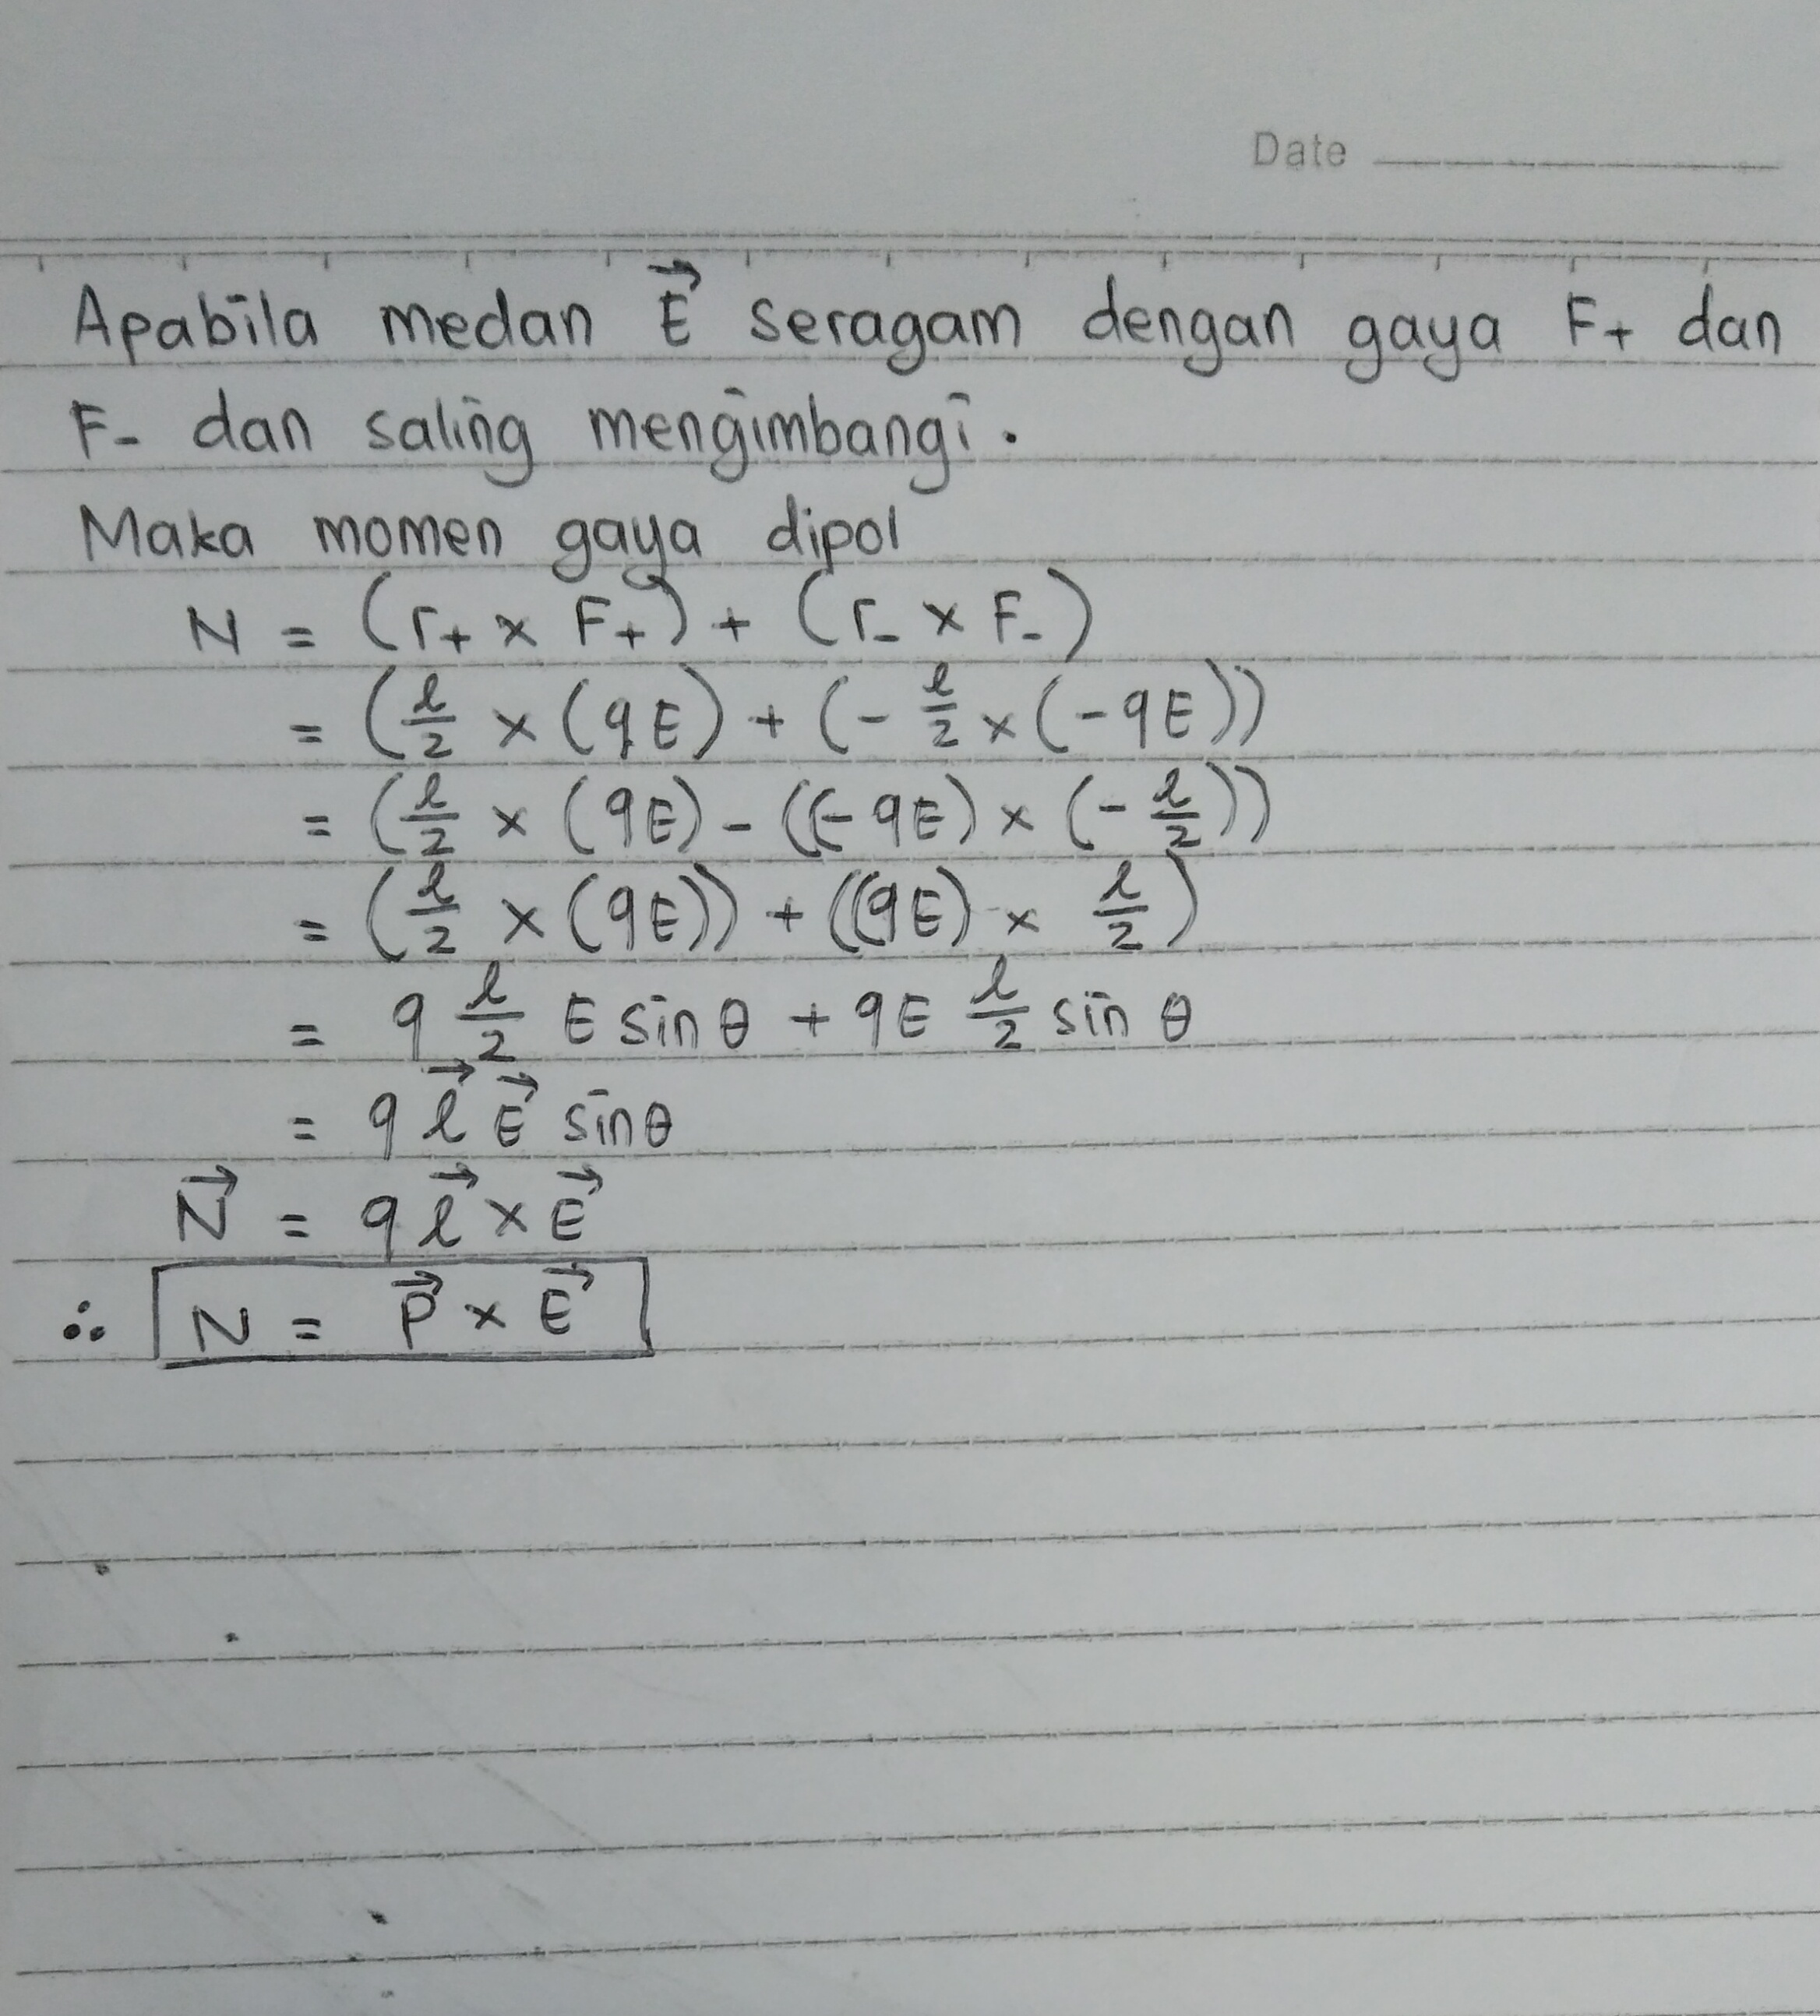 Date
Apabila medan E⃗ seragam dengan gaya F₊ dan
F₋ dan saling mengimbangi.
Maka momen gaya dipol
N = (r₊ × F₊) + (r₋ × F₋)
= (ℓ/2 × (qE) + (- ℓ/2 × (-qE))
= (ℓ/2 × (qE) - ((-qE) × (- ℓ/2))
= (ℓ/2 × (qE)) + ((qE) × ℓ/2)
= q ℓ/2 E sin θ + qE ℓ/2 sin θ
= q ℓ⃗ E⃗ sin θ
N⃗ = q ℓ⃗ × E⃗
∴ N = P⃗ × E⃗